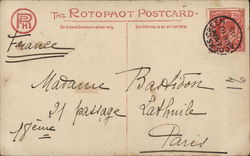 THE ROTOPHOT POSTCARD.
For Inland Communication only.
The Address to be written here.
France
Madame Bastidon
21 passage
18ème
Paris